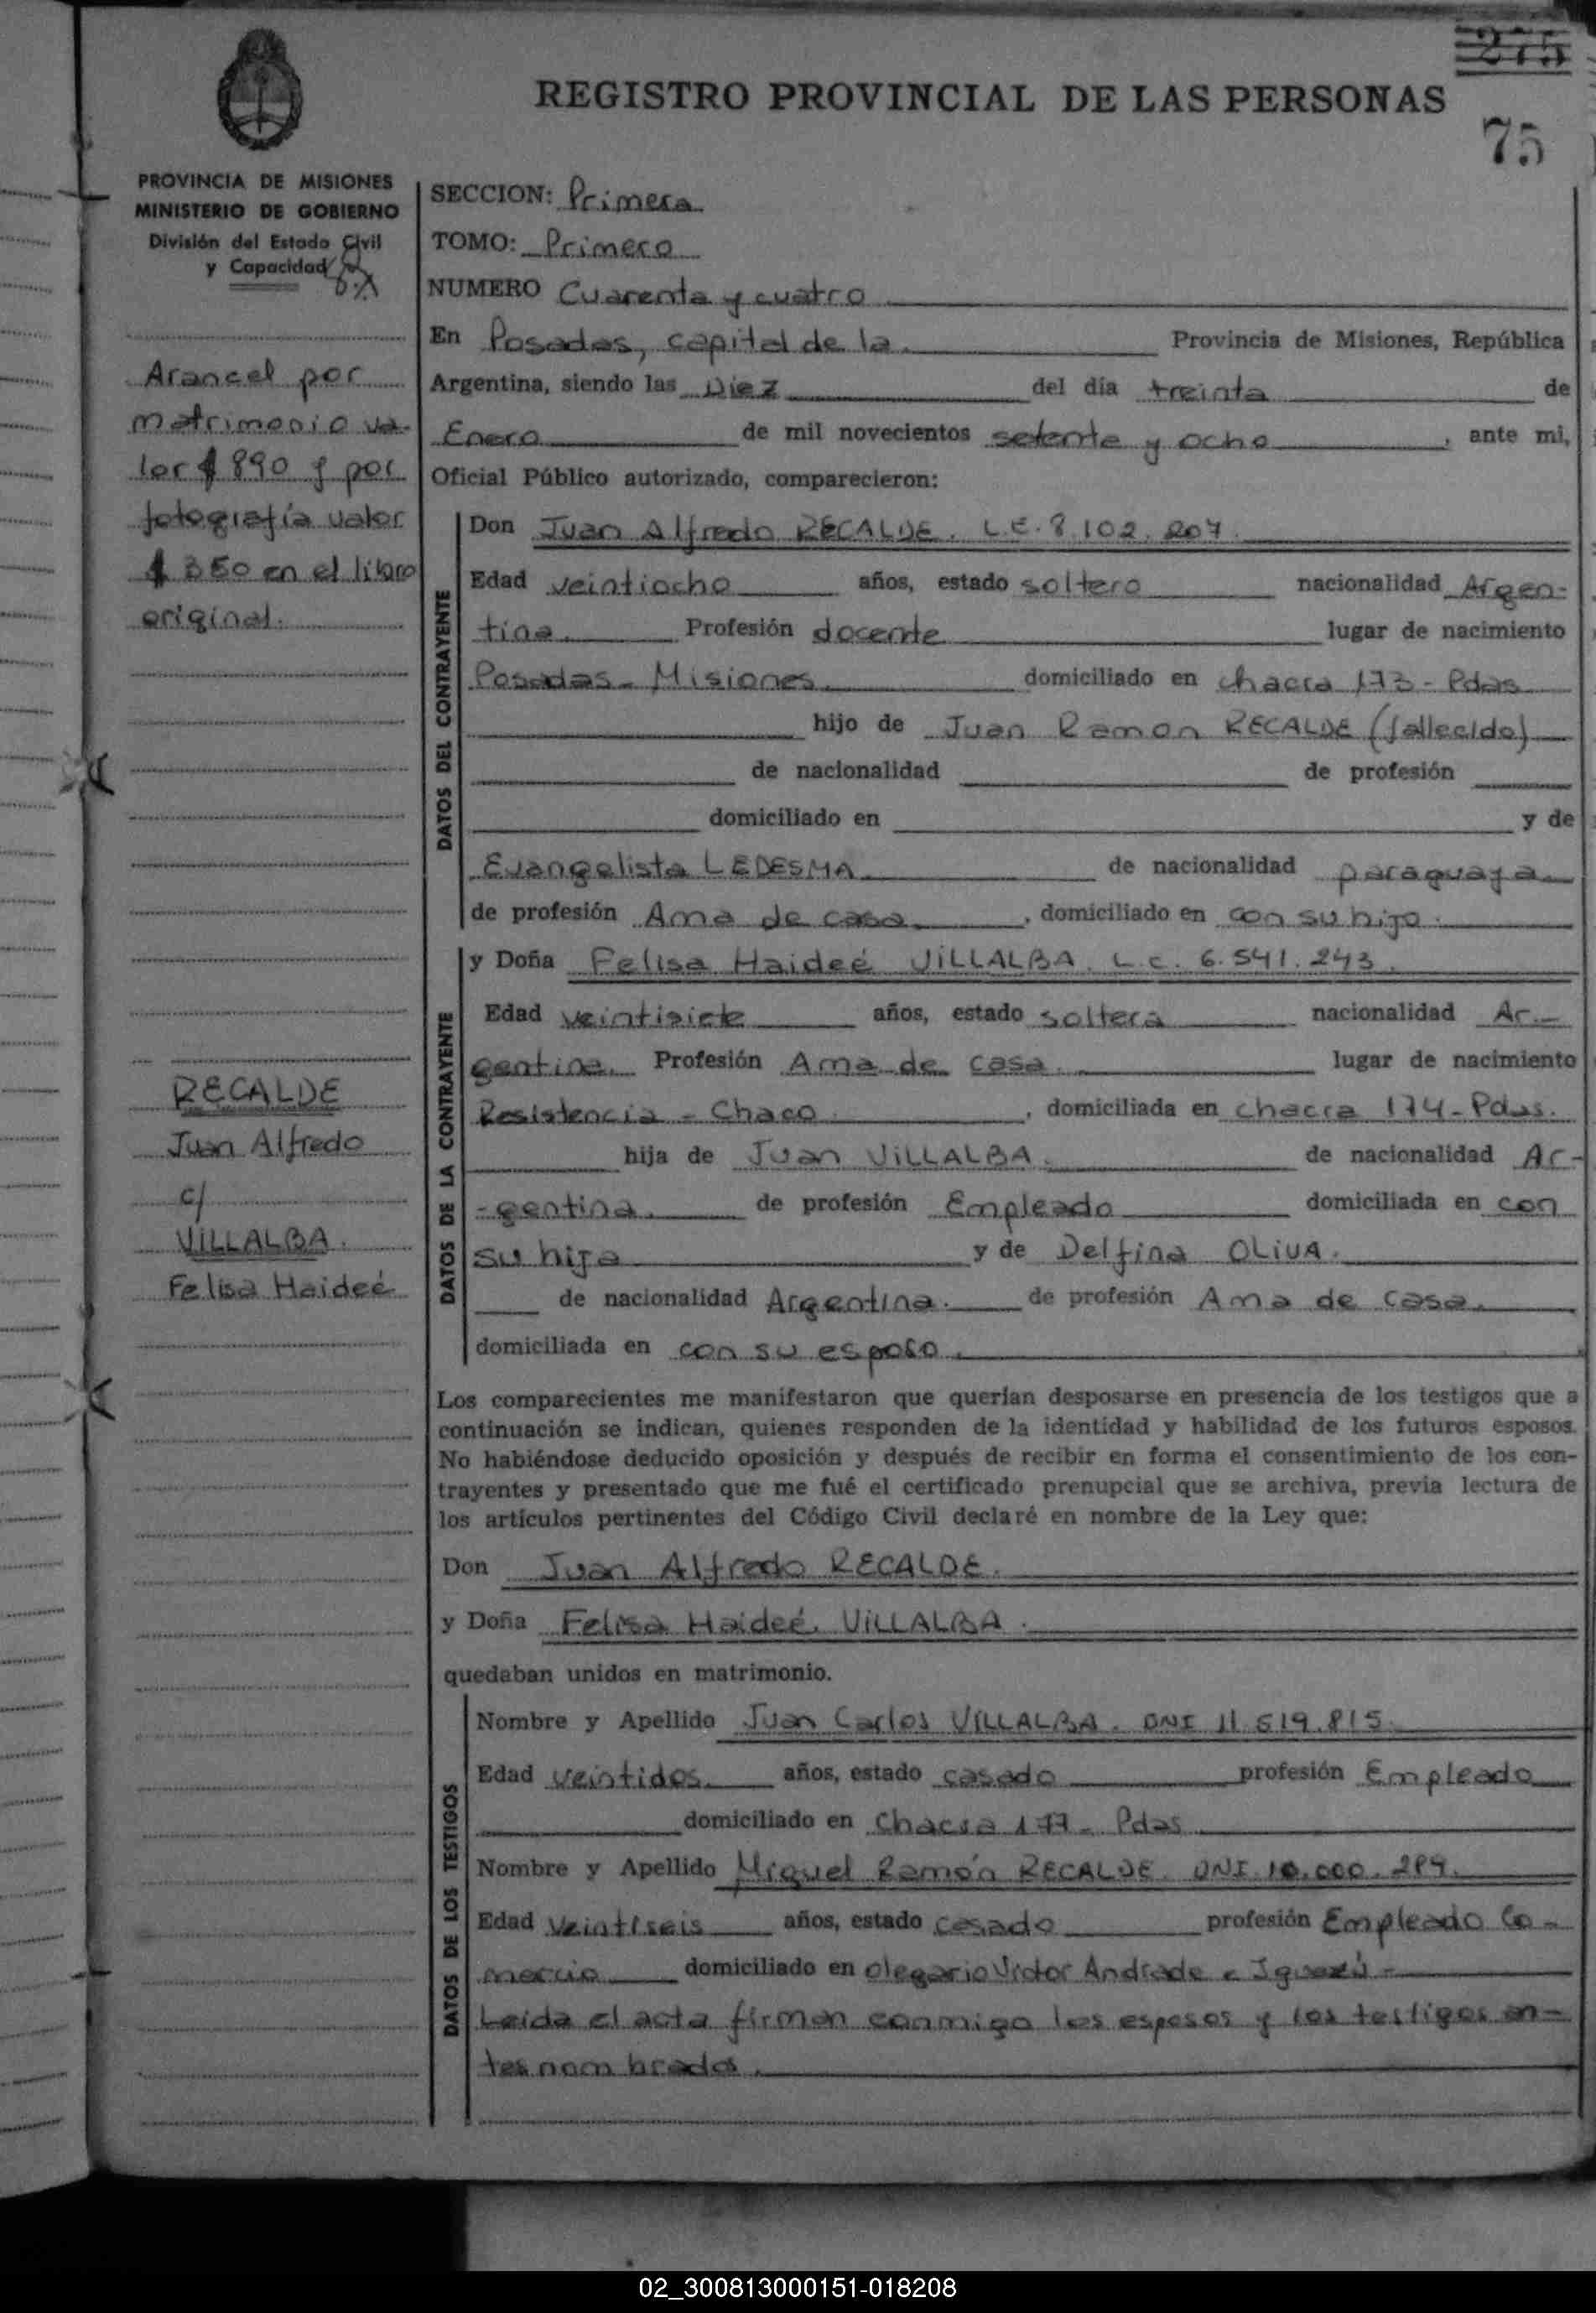 275
REGISTRO PROVINCIAL DE LAS PERSONAS
75
PROVINCIA DE MISIONES
MINISTERIO DE GOBIERNO
División del Estado Civil
y Capacidad
Arancel por
matrimonio va-
lor $ 890 y por
fotografía valor
$ 350 en el libro
original.
RECALDE
Juan Alfredo
c/
VILLALBA.
Felisa Haideé
SECCION: Primera
TOMO: Primero
NUMERO Cuarenta y cuatro
En Posadas, capital de la Provincia de Misiones, República
Argentina, siendo las Diez del día treinta de
Enero de mil novecientos setenta y ocho, ante mi,
Oficial Público autorizado, comparecieron:
DATOS DEL CONTRAYENTE
Don Juan Alfredo RECALDE. L.E. 8.102.207.
Edad veintiocho años, estado soltero nacionalidad Argen-
tina. Profesión docente lugar de nacimiento
Posadas - Misiones domiciliado en chacra 173 - Pdas
hijo de Juan Ramon RECALDE (fallecido)
de nacionalidad de profesión
domiciliado en y de
Evangelista LEDESMA de nacionalidad paraguaya
de profesión Ama de casa, domiciliado en con su hijo.
DATOS DE LA CONTRAYENTE
y Doña Felisa Haideé VILLALBA. L.C. 6.541.243.
Edad veintisiete años, estado soltera nacionalidad Ar-
gentina. Profesión Ama de casa. lugar de nacimiento
Resistencia - Chaco, domiciliada en chacra 174 - Pdas.
hija de Juan VILLALBA. de nacionalidad Ar-
-gentina. de profesión Empleado domiciliada en con
su hija y de Delfina OLIVA.
de nacionalidad Argentina. de profesión Ama de casa.
domiciliada en con su esposo.
Los comparecientes me manifestaron que querían desposarse en presencia de los testigos que a
continuación se indican, quienes responden de la identidad y habilidad de los futuros esposos.
No habiéndose deducido oposición y después de recibir en forma el consentimiento de los con-
trayentes y presentado que me fué el certificado prenupcial que se archiva, previa lectura de
los artículos pertinentes del Código Civil declaré en nombre de la Ley que:
Don Juan Alfredo RECALDE.
y Doña Felisa Haideé VILLALBA.
quedaban unidos en matrimonio.
DATOS DE LOS TESTIGOS
Nombre y Apellido Juan Carlos VILLALBA. DNI 11.519.815.
Edad veintidos. años, estado casado profesión Empleado
domiciliado en chacra 177 - Pdas
Nombre y Apellido Miguel Ramón RECALDE. DNI. 10.000.289.
Edad veintiseis años, estado casado profesión Empleado Co-
mercio domiciliado en olegario Victor Andrade e Iguazú -
Leida el acta firman conmigo los esposos y los testigos an-
tes nombrados.
02_300813000151-018208